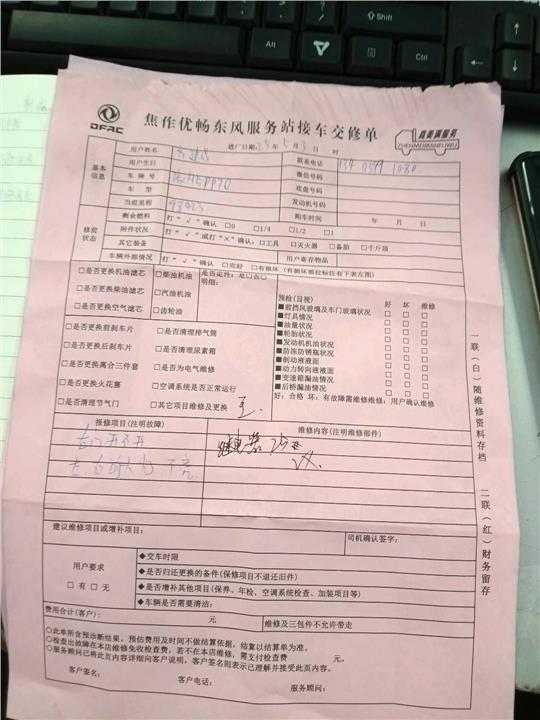 Shift
Alt
Ctrl
DFAC
焦作优畅东风服务站接车交修单
真美满服务
ZHENMEIMANFUWU
进厂日期: 23年5月3日 时
基本信息
用户姓名
联系电话 134 0399 1080
用户生日
微信号码
车牌号
底盘号码
车型
发动机号码
当前里程
购车时间 年 月 日
修前状态
剩余燃料 打“√”确认 □0 □1/4 □1/2 □1
附件状况 打“√”或打“×”确认:□工具 □灭火器 □备胎 □千斤顶
其它装备 用户寄存物品
车辆外部情况 打“√”确认 □完好 □有损坏(有损坏部位标注有下表左图)
□是否更换机油滤芯 □柴油机油 是否定件: 是□否□
明细:
□是否更换柴油滤芯 □汽油机油
□是否更换空气滤芯 □齿轮油
□是否更换前刹车片 □是否清理排气筒
□是否更换后刹车片 □是否清理尿素箱
□是否更换离合三件套 □是否为电气维修
□是否更换火花塞 □空调系统是否正常运行
□是否清理节气门 □其它项目维修及更换
预检(目视) 好 坏 维修
■前挡风玻璃及车门玻璃状况 □ □ □
■灯具情况 □ □ □
■油量状况 □ □ □
■轮胎状况 □ □ □
■发动机机油状况 □ □ □
■防冻防锈瓶状况 □ □ □
■制动液液面 □ □ □
■动力转向液液面 □ □ □
■变速箱漏油情况 □ □ □
■后桥漏油情况 □ □ □
好:合格 坏:有故障需维修维修:用户确认维修
报修项目(注明故障)
维修内容(注明维修部件)
右门开不开
继电器
不亮
建议维修项目或增补项目:
司机确认签字:
用户要求
□有 □无
◆交车时限
◆是否归还更换的备件(保修项目不退还旧件)
◆是否增补其他项目(保养、年检、空调系统检查、加装项目等)
◆车辆是否需要清洁:
费用合计(客户): 元
维修及三包件不允许带走
○此单所含预诊断结果,预估费用及时间不做结算依据,结算以结算单为准。
○检查出故障在本店维修免收检查费,若不在本店维修,需支付检查费 元。
○服务顾问已将此页内容详细向客户说明,客户签名则表示已理解并接受此页内容。
客户签名: 客户电话: 服务顾问:
一联(白)随维修资料存档
二联(红)财务留存